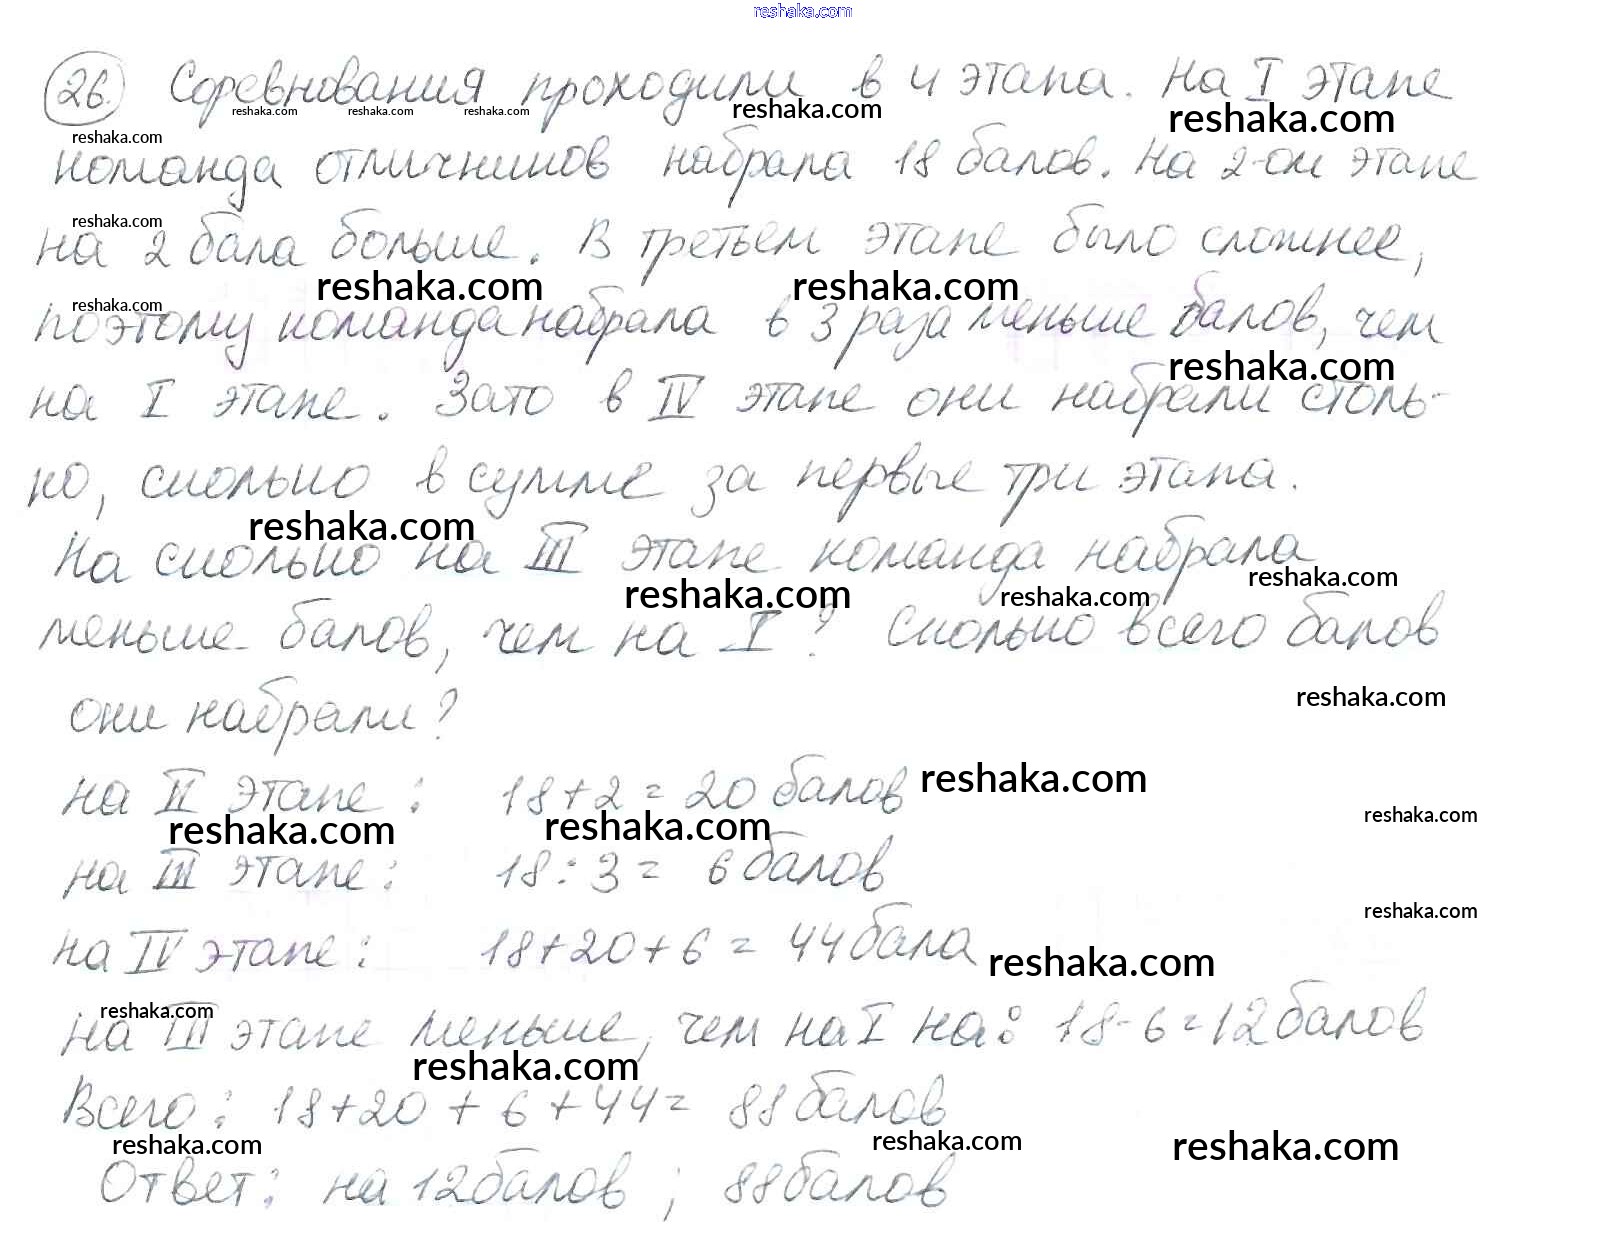 reshaka.com
26. Соревнования проходили в 4 этапа. На I этапе
reshaka.com reshaka.com reshaka.com reshaka.com reshaka.com
reshaka.com
команда отличников набрала 18 балов. На 2-ом этапе
reshaka.com
на 2 бала больше. В третьем этапе было сложнее,
reshaka.com reshaka.com
reshaka.com
поэтому команда набрала в 3 раза меньше балов, чем
reshaka.com
на I этапе. Зато в IV этапе они набрали столь-
ко, сколько в сумме за первые три этапа.
reshaka.com
На сколько на III этапе команда набрала
reshaka.com reshaka.com reshaka.com
меньше балов, чем на I? Сколько всего балов
reshaka.com
они набрали?
на II этапе: 18+2=20 балов reshaka.com
reshaka.com reshaka.com reshaka.com
на III этапе: 18:3= 6 балов
reshaka.com
на IV этапе: 18+20+6= 44 бала reshaka.com
reshaka.com
на III этапе меньше, чем на I на: 18-6=12 балов
reshaka.com
Всего: 18+20+6+44= 88 балов
reshaka.com reshaka.com reshaka.com
Ответ: на 12 балов; 88 балов